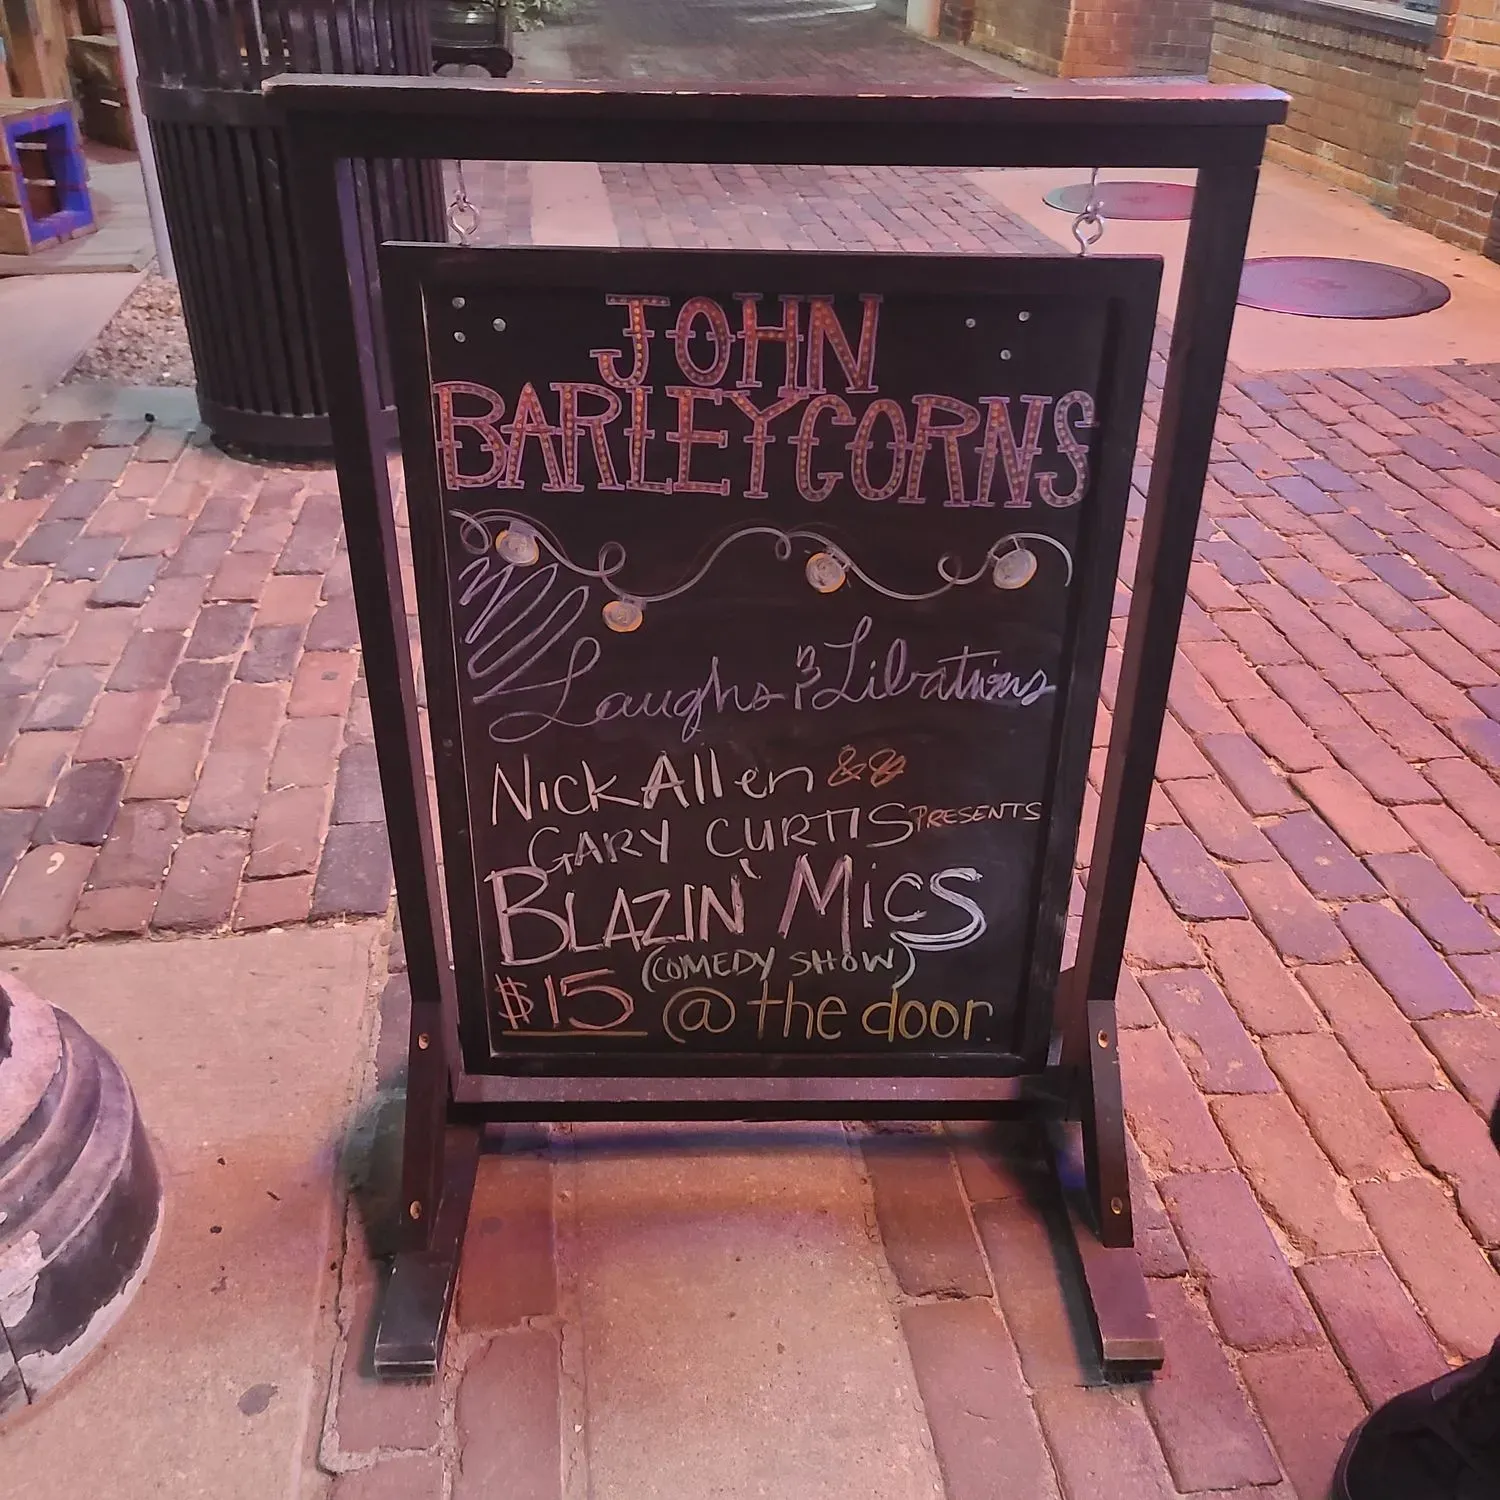 JOHN
BARLEYCORNS
Laughs & Libations
Nick Allen &
GARY CURTIS PRESENTS
BLAZIN' MICS
(COMEDY SHOW)
$15 @ the door.